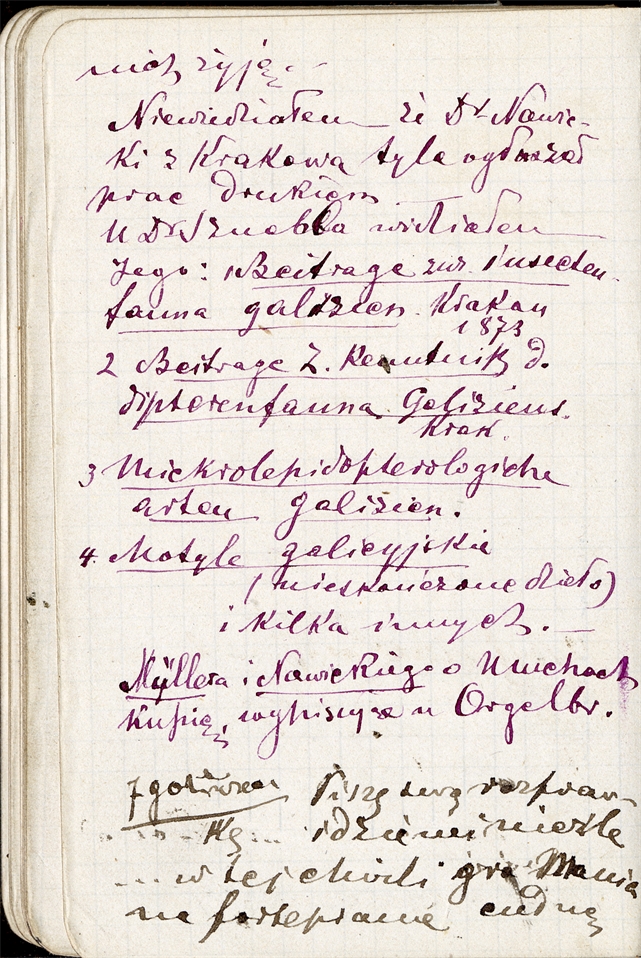 nich żyją. –
Niewiedziałem że Dr Nawic-
ki z Krakowa tyle ogłaszał
prac drukiem
U Dr Sznabla widziałem
Jego: 1 Beitrage zur insecten
fauna galizien. Krakau
1873
2 Beitrage Z. Kenntnik d.
dipterenfauna Galiziens.
Krak.
3 Mickrolepidopterologiche
arten galizien.
4. Motyle galicyjskie
(nieskończone dzieło)
i kilka innych. –
Müllera i Nawickiego o Muchach
Kupię, wypiszę u Orgelbr.
7 Piszę swą rozpraw-
kę idzie mi nieźle
w tej chwili gra Mania
na fortepianie cudną